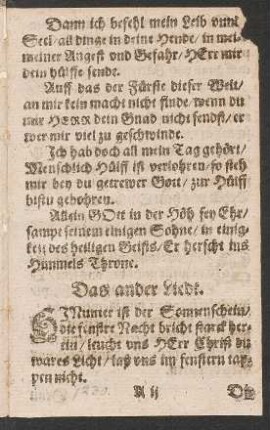 Dann ich befehl mein Leib vnnd
Seel/all dinge in deine Hende/ in mei-
meiner Angest vnd Gefahr/ HErr mir
dein hülffe sende.
Auff das der Fürste dieser Welt/
an mir kein macht nicht finde/ wenn du
mir HERR dein Gnad nicht sendst/ er
wer mir viel zu geschwinde.
Ich hab doch all mein Tag gehört/
Menschlich Hülff ist verlohren/ so steh
mir bey du getrewer Gott/ zur Hülff
bistu gebohren.
Allein GOtt in der Höh sey Ehr/
sampt seinem einigen Sohne/ in einig-
keit des heiligen Geists/ Er herscht ins
Himmels Throne.
Das ander Liedt.
Hinunter ist der Sonnenschein/
die finstre Nacht bricht starck her-
ein/ leucht vns HErr Christ du
wares Licht/ laß vns im finstern tap-
pen nicht.
A ij